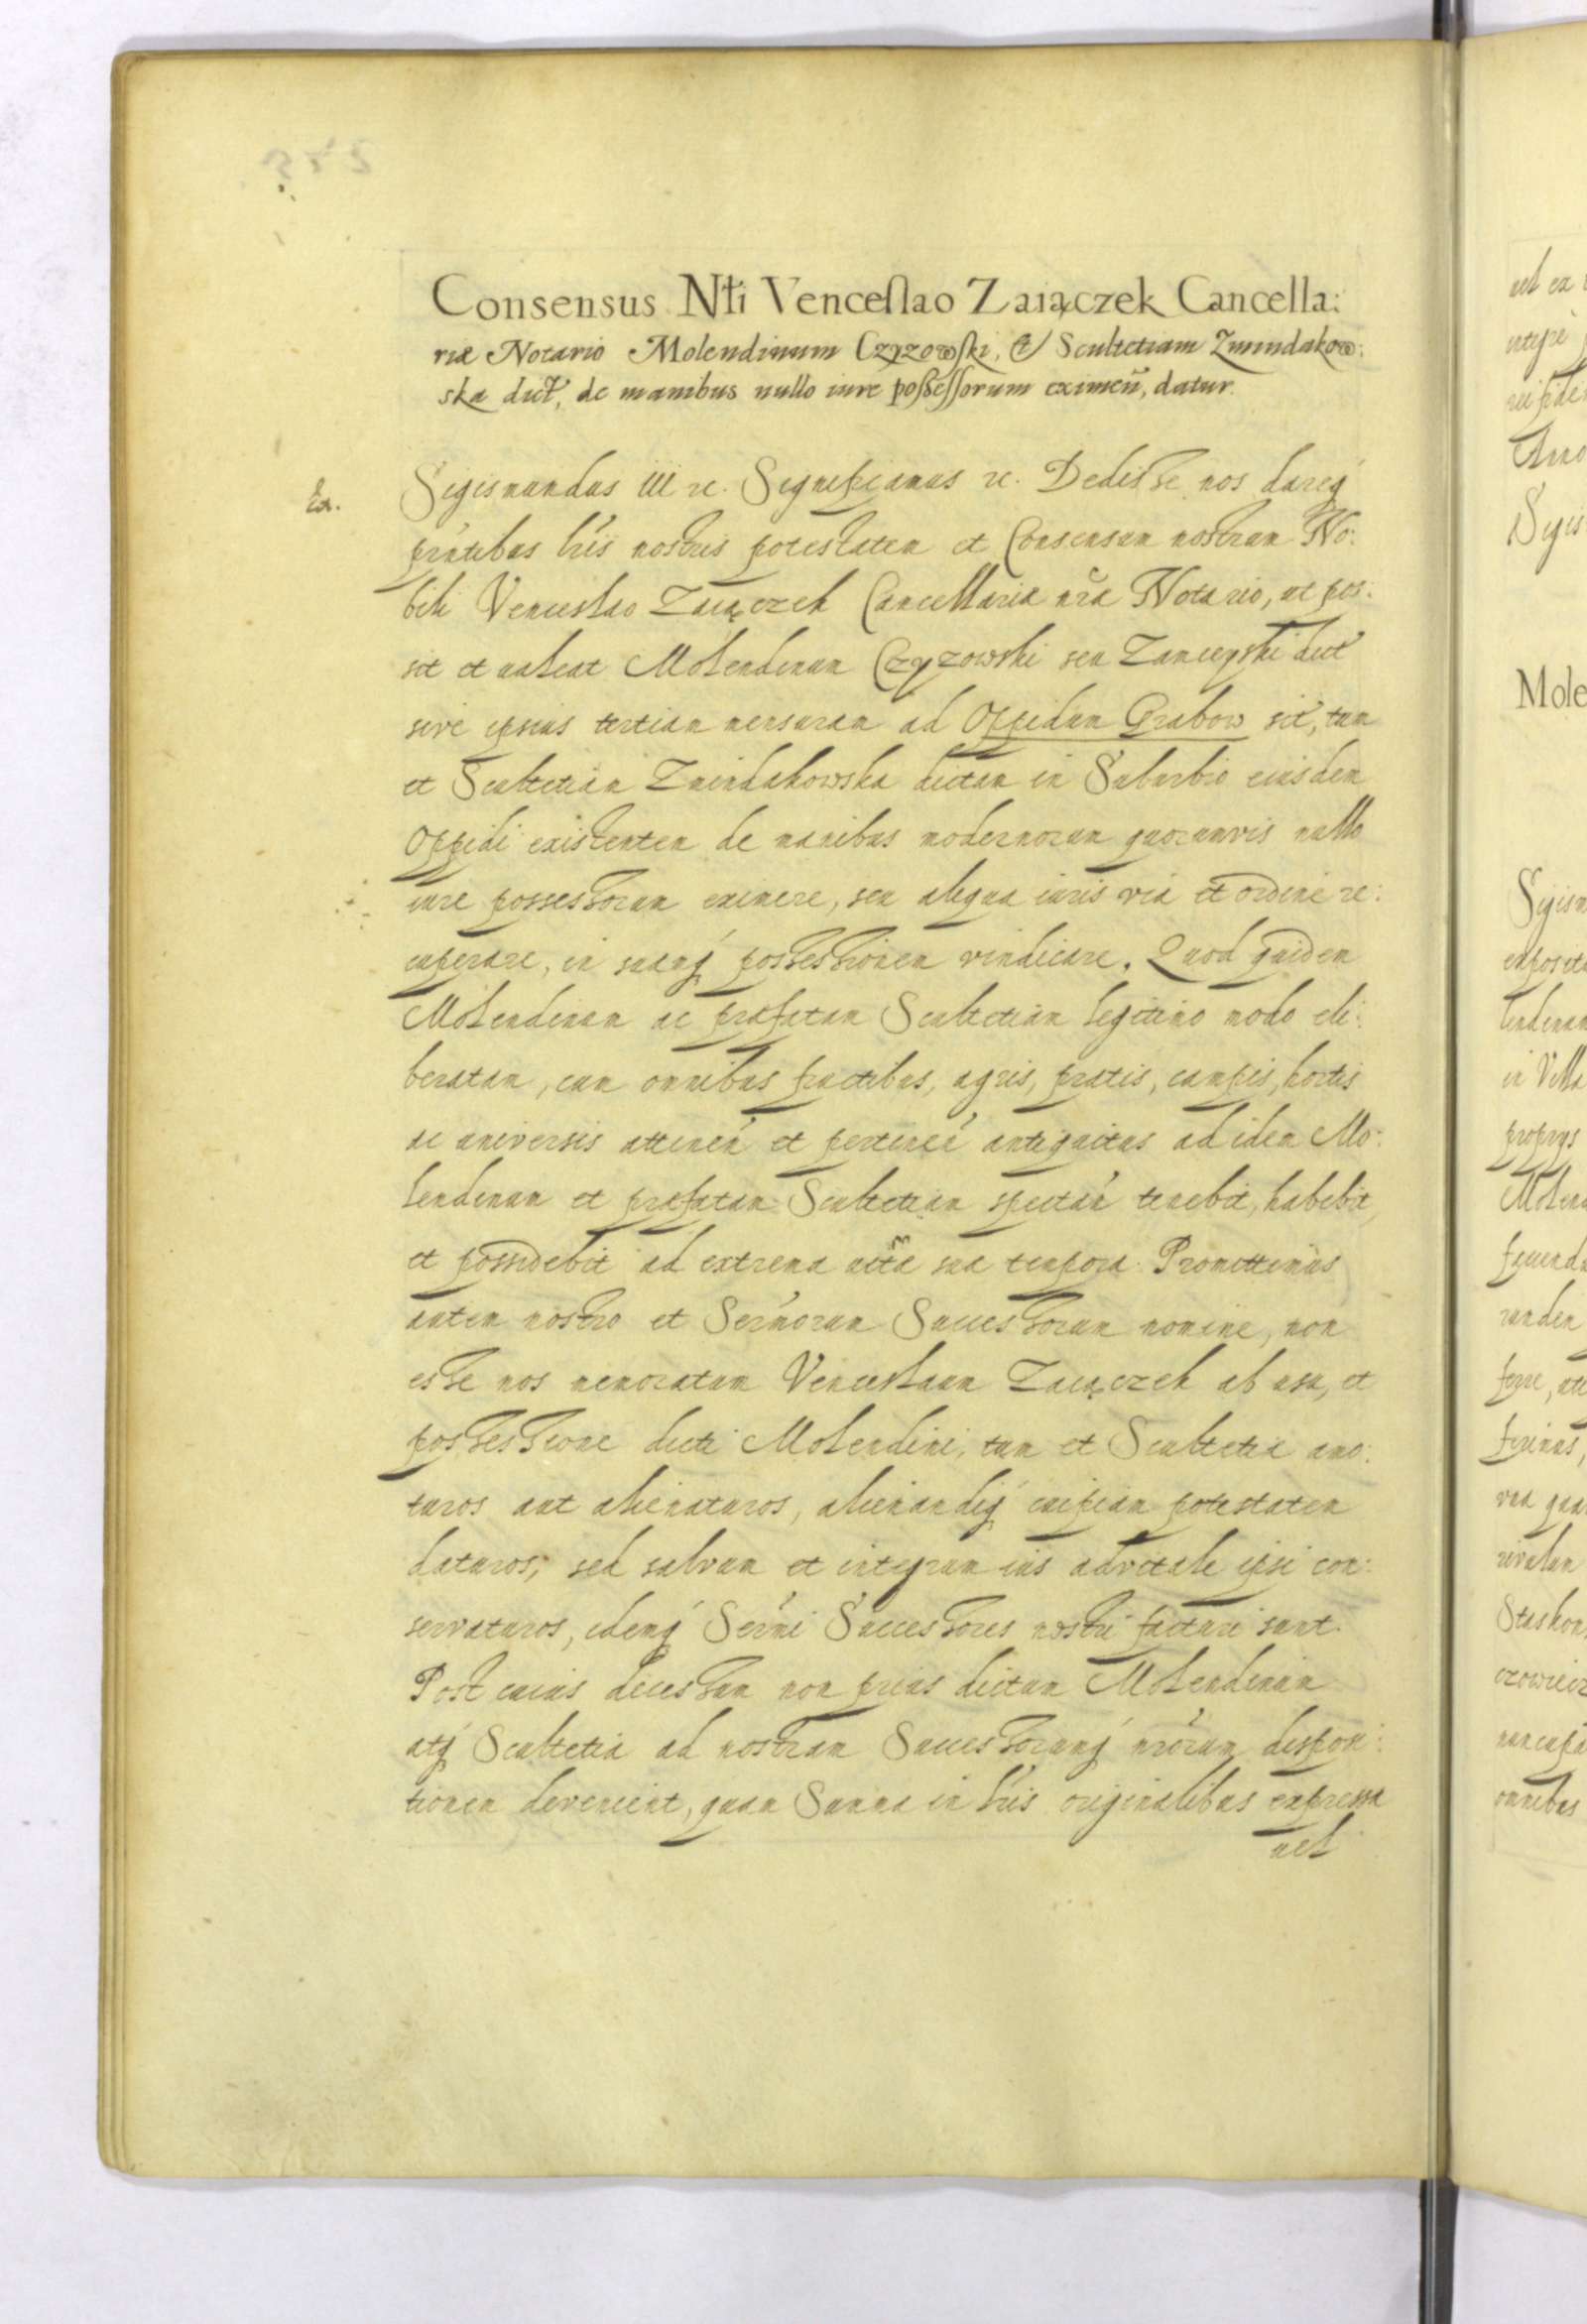 Consensus Nłi Venceslao Zaiączek Cancella:
riæ Notario Molendinum Czyzowski, & Scultetiam Zmindakow:
ska dict, de manibus nullo iure possessorum eximeñ, datur.
Ex.
Sigismundus III rc. Significamus rc. Dedisse nos dareq́
pñtibus lris nostris potestatem et Consensum nostrum No:
bili Venceslao Zaiączek Cancellariæ nrã Notario, ut pos:
sit et valeat Molendinum Czyzowski seu dict
sive ipsius tertiam mensuram ad Oppidum Grabow sit, tum
et Scultetiam Zmindakowska dictam in Suburbio eiusdem
Oppidi existentem de manibus modernorum quorumvis nullo
iure possessorum eximere, seu aliqua iuris via et ordine re:
cuperare, in suamq́ possessionem vindicare. Quod quidem
Molendinum ac præfatam Scultetiam legitimo modo eli:
beratam, cum omnibus fructibus, agris, pratis, campis, hortis
ac universis attineñ et pertineñ antiquitus ad idem Mo:
lendinum et præfatam Scultetiam spectañ tenebit, habebit,
et possidebit ad extrema vitæ suæ tempora. Promittimus
autem nostro et Sermorum Successorum nomine, non
esse nos memoratum Venceslaum Zaiączek ab usu, et
possessione dicti Molendini, tum et Scultetiæ amo:
turos aut alienaturos, alienandiq́ cuipiam potestatem
daturos, sed salvum et integrum ius advitale ipsi con:
servaturos, idemq́ Sermi Successores nostri facturi sunt.
Post cuius decessum non prius dictum Molendinum
atq́ Scultetia ad nostram Successorumq́ nrorum disposi:
tionem devenient, quam Summa in lris originalibus expressa
vel
vel ex
Sigis
Mole
Sigism
in Villa
proprys
Molen
omnibus